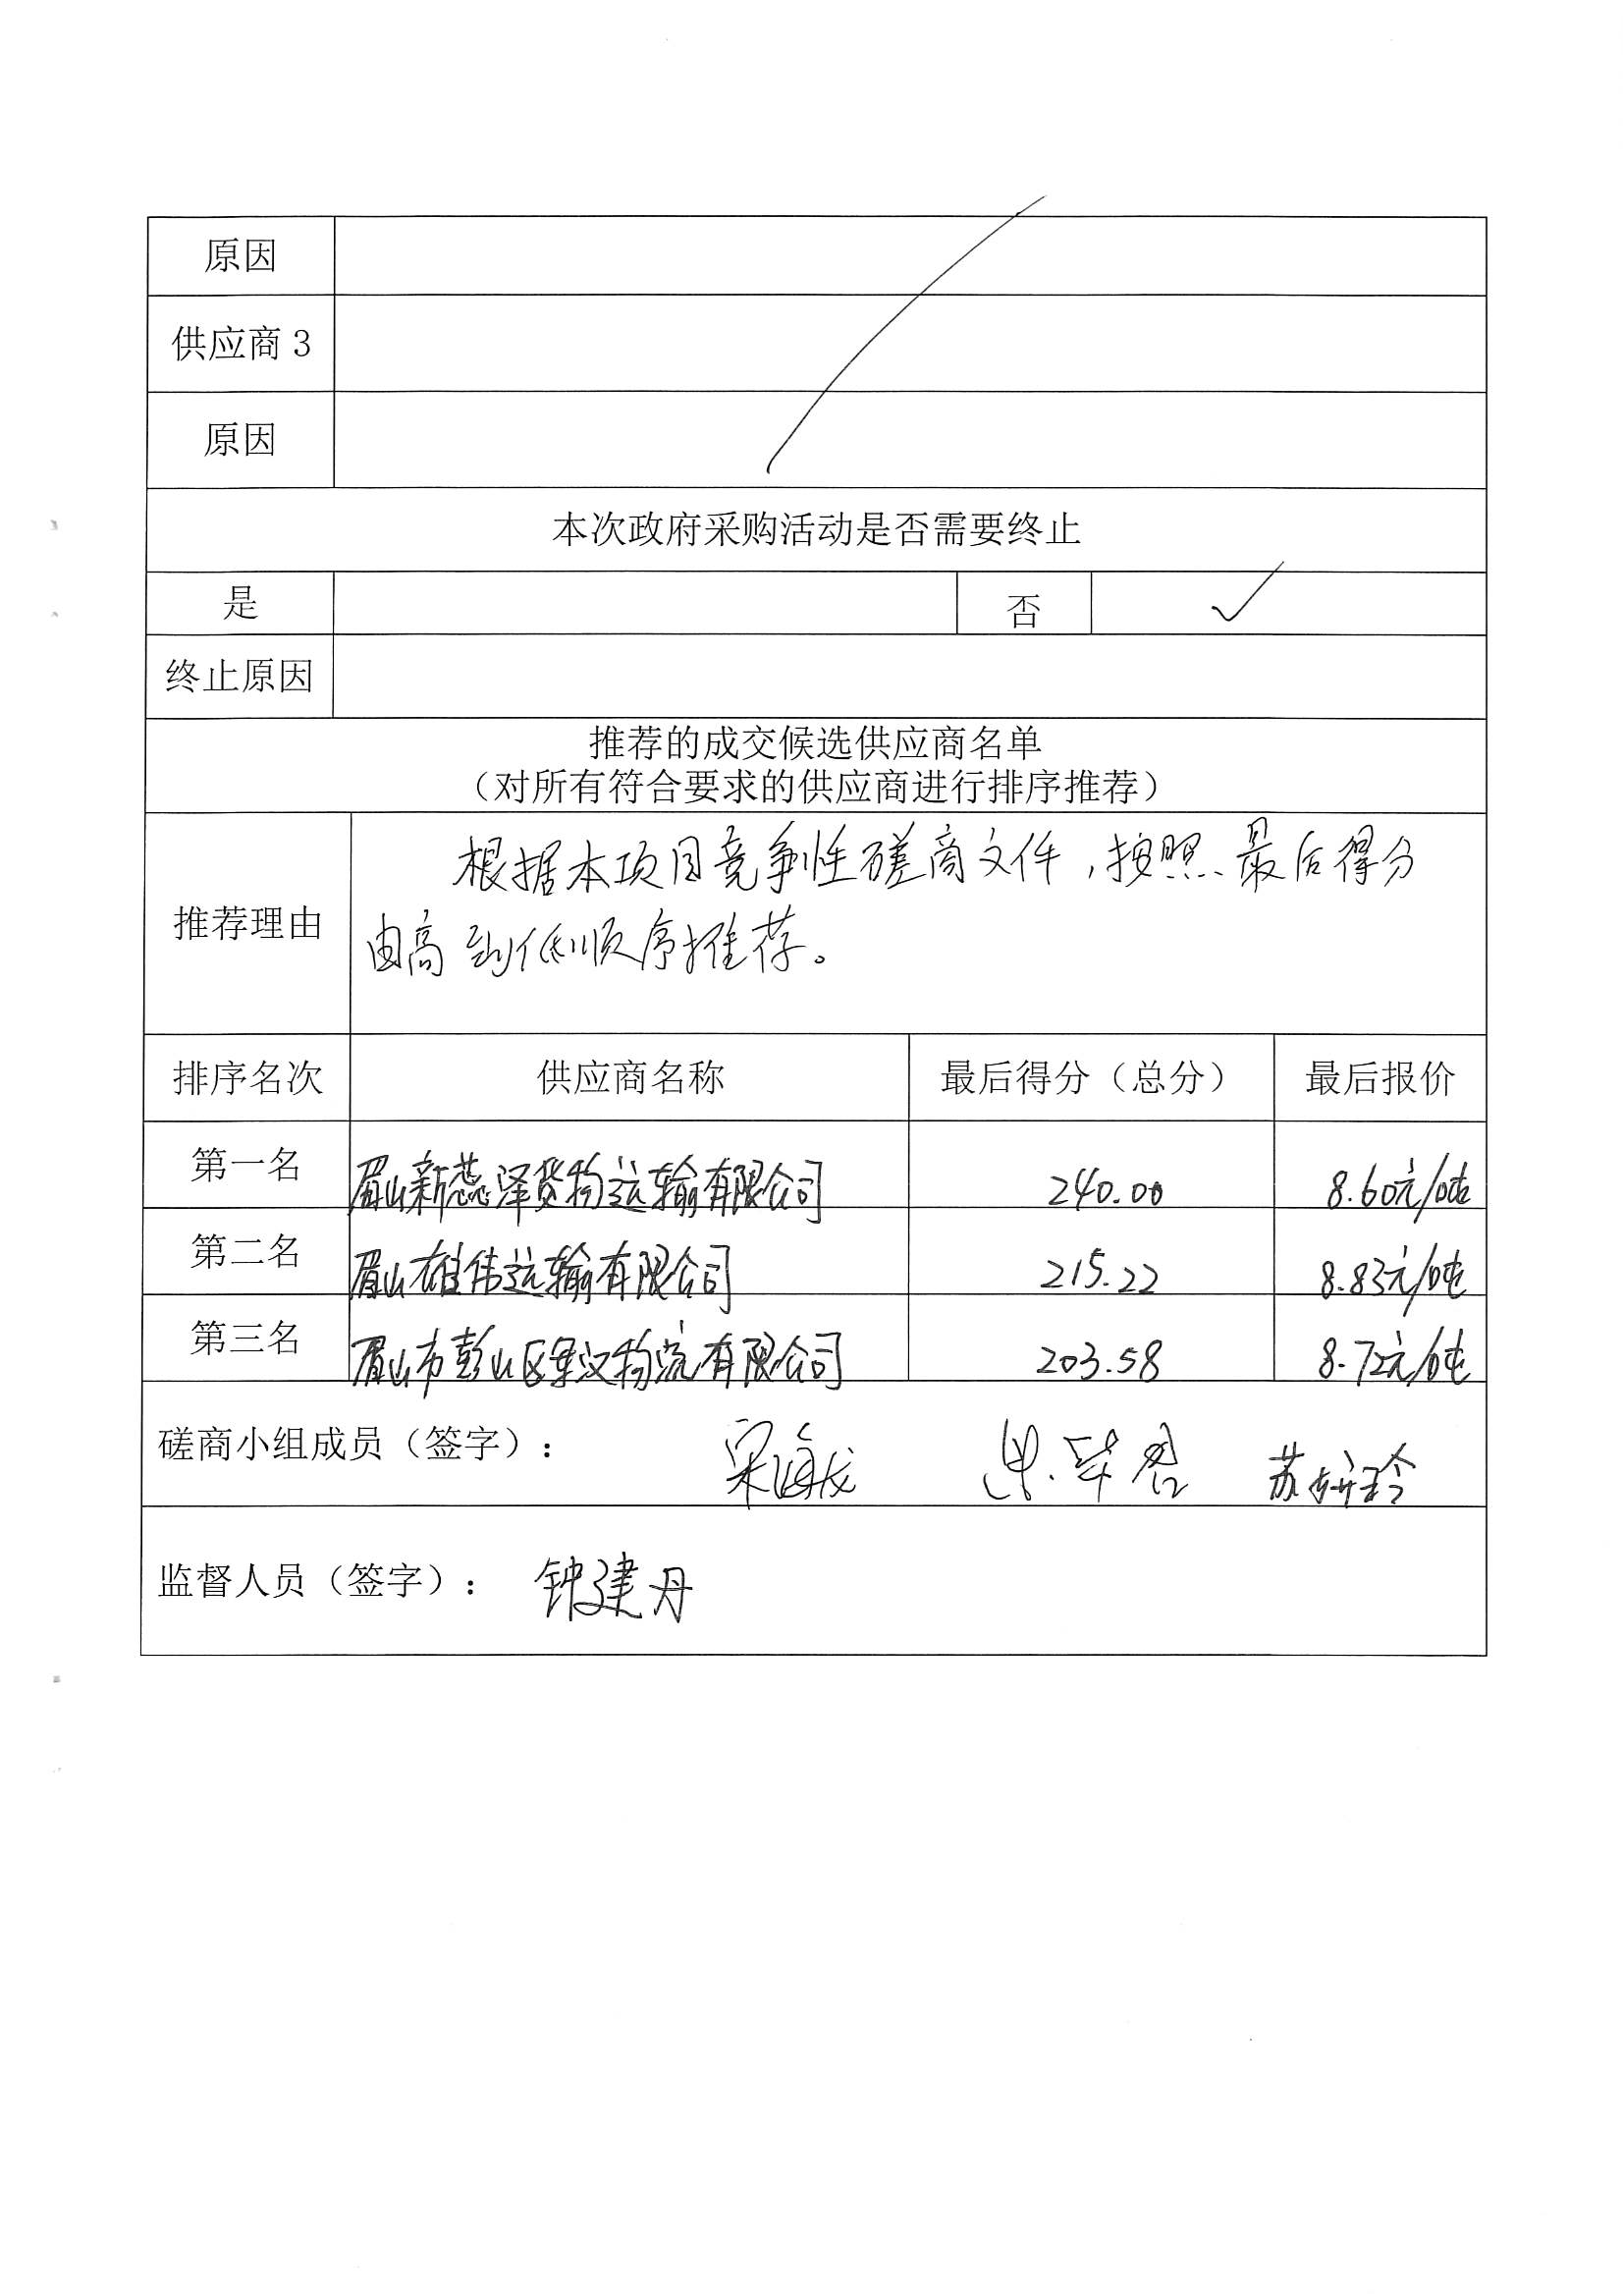 原因
供应商 3
原因
本次政府采购活动是否需要终止
是 否 ✓
终止原因
推荐的成交候选供应商名单
（对所有符合要求的供应商进行排序推荐）
根据本项目竞争性磋商文件，按照最后得分
推荐理由
由高到低顺序推荐。
排序名次 供应商名称 最后得分（总分） 最后报价
第一名 眉山新蕊泽货物运输有限公司 240.00 8.60元/吨
第二名 眉山雄伟运输有限公司 215.22 8.83元/吨
第三名 眉山市彭山区 物流有限公司 203.58 8.72元/吨
磋商小组成员（签字）：
监督人员（签字）： 钟建丹